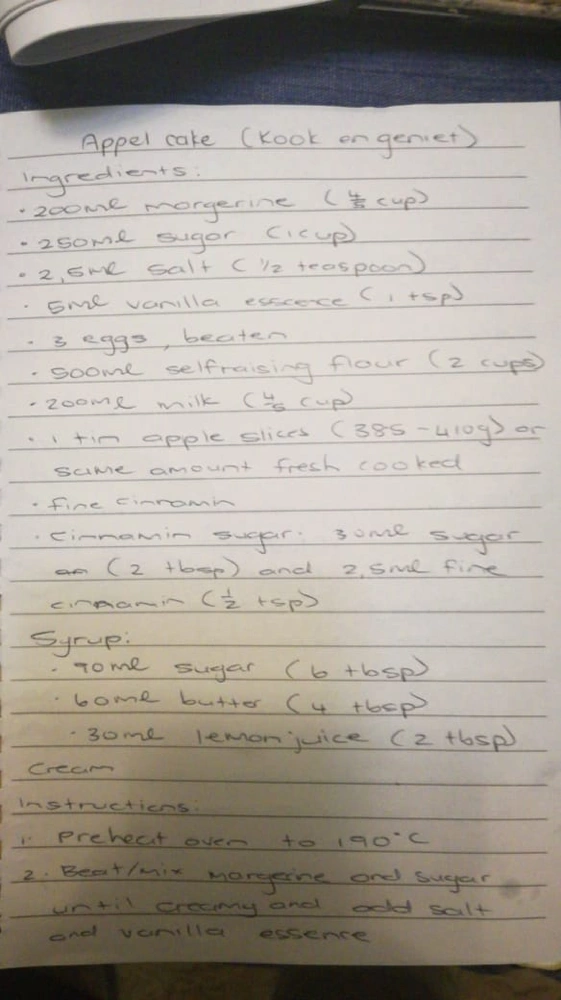 Appel cake (Kook en geniet)
Ingredients:
· 200ml margerine (4/5 cup)
· 250ml sugar (1 cup)
· 2,5ml salt (1/2 teaspoon)
· 5ml vanilla esscence (1 tsp)
· 3 eggs, beaten
· 500ml selfraising flour (2 cups)
· 200ml milk (4/5 cup)
· 1 tin apple slices (385-410g) or
same amount fresh cooked
· fine cinnamin
· cinnamin sugar: 30ml sugar
(2 tbsp) and 2,5ml fine
cinnamin (1/2 tsp)
Syrup:
· 90ml sugar (6 tbsp)
· 60ml butter (4 tbsp)
· 30ml lemon juice (2 tbsp)
Cream
Instructions:
1. Preheat oven to 190°C
2. Beat/mix margerine and sugar
until creamy and add salt
and vanilla essence